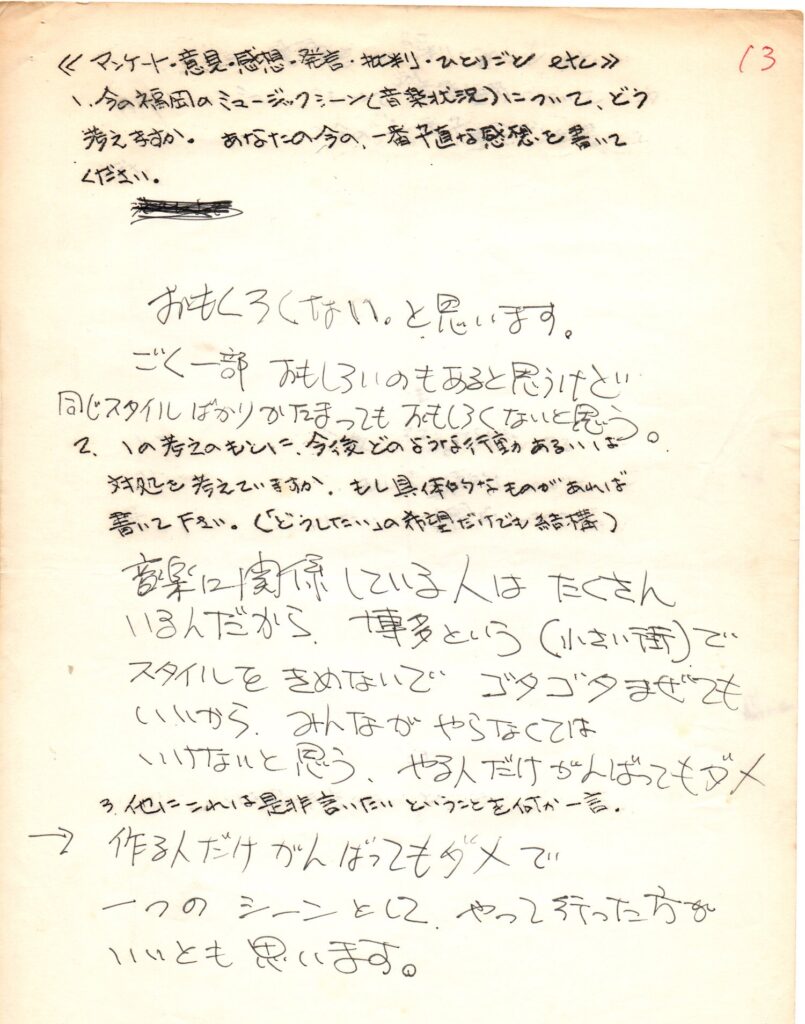 13
≪アンケート・意見・感想・発言・批判・ひとりごと etc≫
1、今の福岡のミュージックシーン(音楽状況)について、どう
考えますか。あなたの今の、一番卒直な感想を書いて
ください。
おもくろくない。と思います。
ごく一部 おもしろいのもあると思うけど
同じスタイルばかりかたまっても おもしろくないと思う。
2、1の考えのもとに、今後どのような行動があるいは
対処を考えていますか。もし具体的なものがあれば
書いて下さい。(「どうしたい」の希望だけでも結構)
音楽に関係している人は たくさん
いるんだから、博多という(小さい街)で
スタイルを きめないで ゴタゴタまぜても
いいから、みんなが やらなくては
いけないと思う、やる人だけがんばってもダメ
3、他にこれは是非言いたいということを何か一言。
→ 作る人だけがんばってもダメで
一つの シーンとして、やって行った方が
いいとも思います。